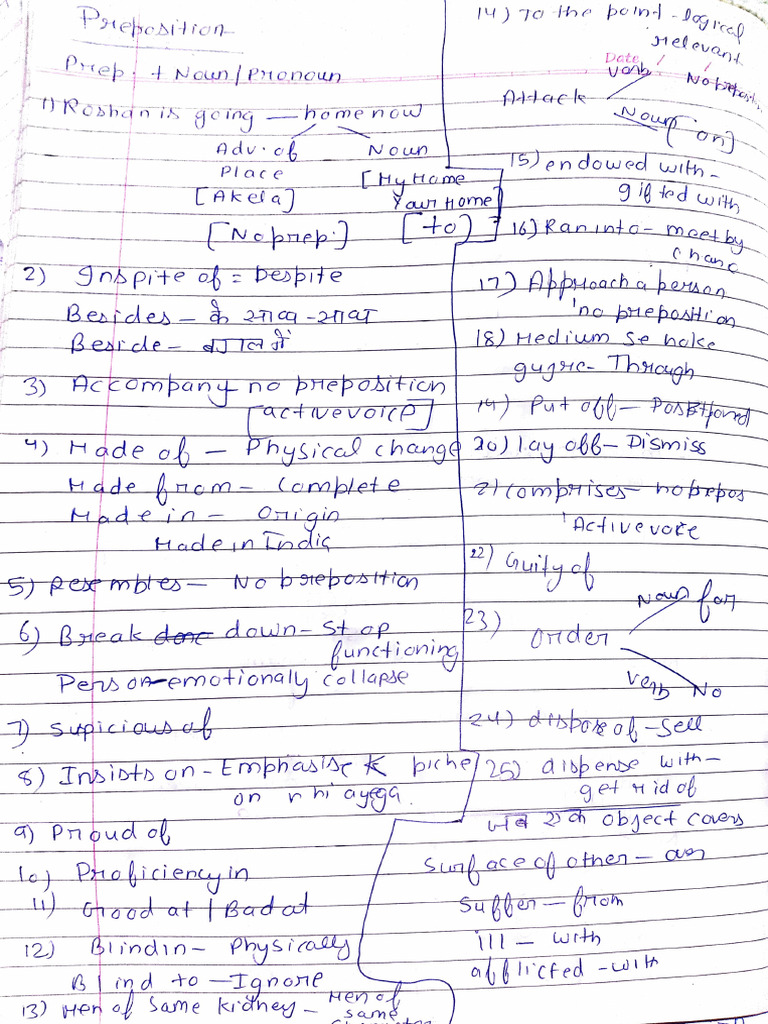 Preposition
Prep. + Noun/Pronoun
1) Roshan is going — home now
Adv. of Noun
Place [My Home
[Akela] Your Home]
[No prep.] [to]
2) Inspite of = Despite
Besides – के साथ-साथ
Beside – बगल में
3) Accompany – no preposition
[active voice]
4) Made of – Physical change
Made from – Complete
Made in – Origin
Made in India
5) Resembles – No breposition
6) Break down – Stop
functioning
Person – emotionaly collapse
7) Supicious of
8) Insists on – Emphasise k piche
on rhi ayega.
9) Proud of
10) Proficiency in
11) Good at / Bad at
12) Blind in – Physically
Blind to – Ignore
13) Men of same kidney – Men of
same
14) To the point – logical
relevant
Date
Verb
Attack
Noun [on]
15) endowed with –
gifted with
16) Ran into – meet by
chanc
17) Approach a person
no preposition
18) Medium se hoke
gujre – Through
19) Put off – Postponed
20) lay off – Dismiss
21) comprises – no prepos
Active voice
22) Guity of
23) Noun for
order
Verb No
24) dispose of – Sell
25) dispense with –
get rid of
जब एक object covers
surface of other – over
suffer – from
ill – with
afflicted – with